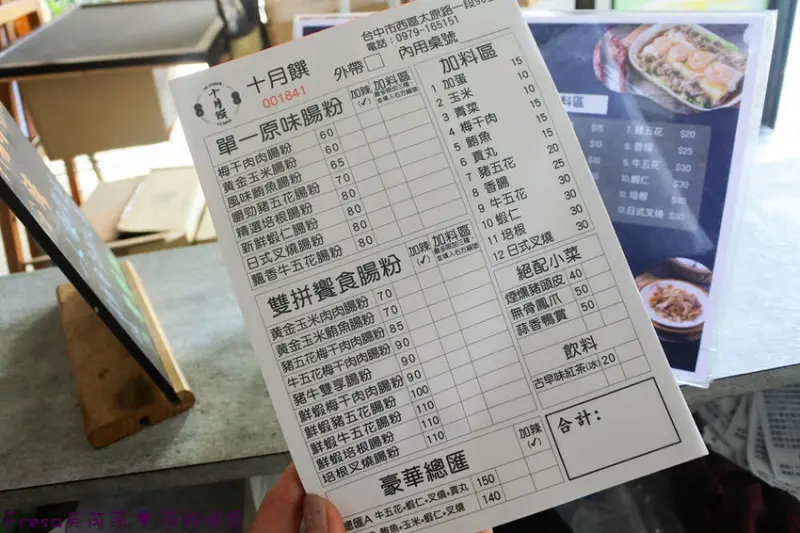 台中市西區太原路一段
電話：0979-165151
十月饌
十月饌
001841
外帶
內用桌號
單一原味腸粉
加辣(✓)
加料區
梅干肉肉腸粉 60
黃金玉米腸粉 60
風味鮪魚腸粉 65
嚼勁豬五花腸粉 70
精選培根腸粉 80
新鮮蝦仁腸粉 80
日式叉燒腸粉 80
飄香牛五花腸粉 80
雙拼饗食腸粉
加辣(✓)
加料區
黃金玉米肉肉腸粉 70
黃金玉米鮪魚腸粉 70
豬五花梅干肉腸粉 85
牛五花梅干肉肉腸粉 90
豬牛雙享腸粉 90
鮮蝦梅干肉肉腸粉 90
鮮蝦豬五花腸粉 100
鮮蝦牛五花腸粉 110
鮮蝦培根腸粉 110
培根叉燒腸粉 110
加料區
1 加蛋 15
2 玉米 10
3 青菜 10
4 梅干肉 15
5 鮪魚 15
6 貢丸 15
7 豬五花 20
8 香腸 25
9 牛五花 30
10 蝦仁 30
11 培根 30
12 日式叉燒 30
絕配小菜
煙燻豬頭皮 40
無骨鳳爪 50
蒜香鴨賞 50
飲料
古早味紅茶(冰) 20
合計：
豪華總匯
加辣(✓)
總匯A 牛五花+蝦仁+叉燒+貢丸 150
鮪魚+玉米+蝦仁+貢丸 140
料區
7.豬五花 $20
8.香腸 $25
9.牛五花 $30
10.蝦仁 $30
11.培根 $30
12.日式叉燒 $30